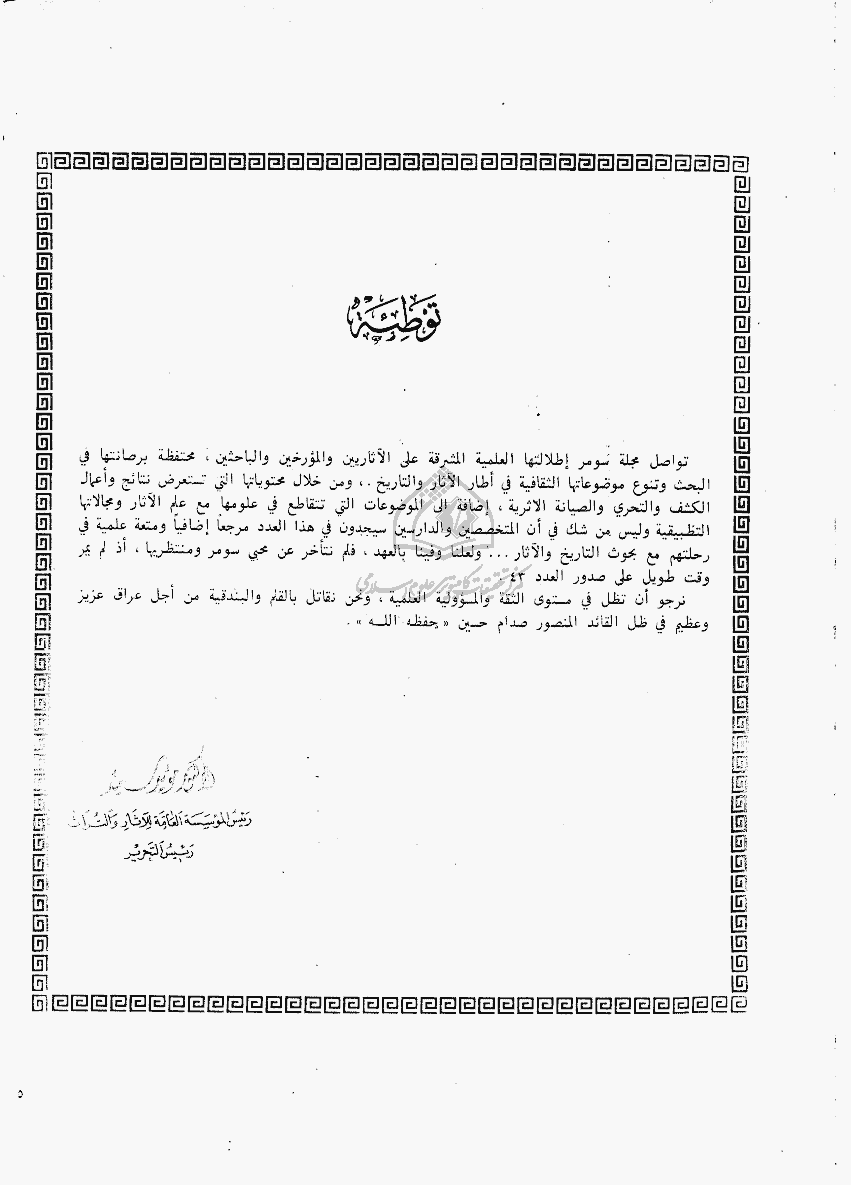 توطئة
تواصل مجلة سومر إطلالتها العلمية المشرقة على الآثاريين والمؤرخين والباحثين ، محتفظة برصانتها في
البحث وتنوع موضوعاتها الثقافية في أطار الآثار والتاريخ .. ومن خلال محتوياتها التي تستعرض نتائج وأعمال
الكشف والتحري والصيانة الاثرية ، إضافة الى الموضوعات التي تتقاطع في علومها مع علم الآثار ومجالاتها
التطبيقية وليس من شك في أن المتخصصين والدارسين سيجدون في هذا العدد مرجعاً إضافياً ومتعة علمية في
رحلتهم مع بحوث التاريخ والآثار ... ولعلنا وفينا بالعهد ، فلم نتأخر عن محبي سومر ومنتظريها ، أذ لم يمر
وقت طويل على صدور العدد ٤٣ .
نرجو أن تظل في مستوى الثقة والمسؤولية العلمية ، ونحن نقاتل بالقلم والبندقية من أجل عراق عزيز
وعظيم في ظل القائد المنصور صدام حسين « حفظه اللـه » .
الدكتور مؤيد سعيد
رئيس المؤسسة العامة للآثار والتراث
رئيس التحرير
٥